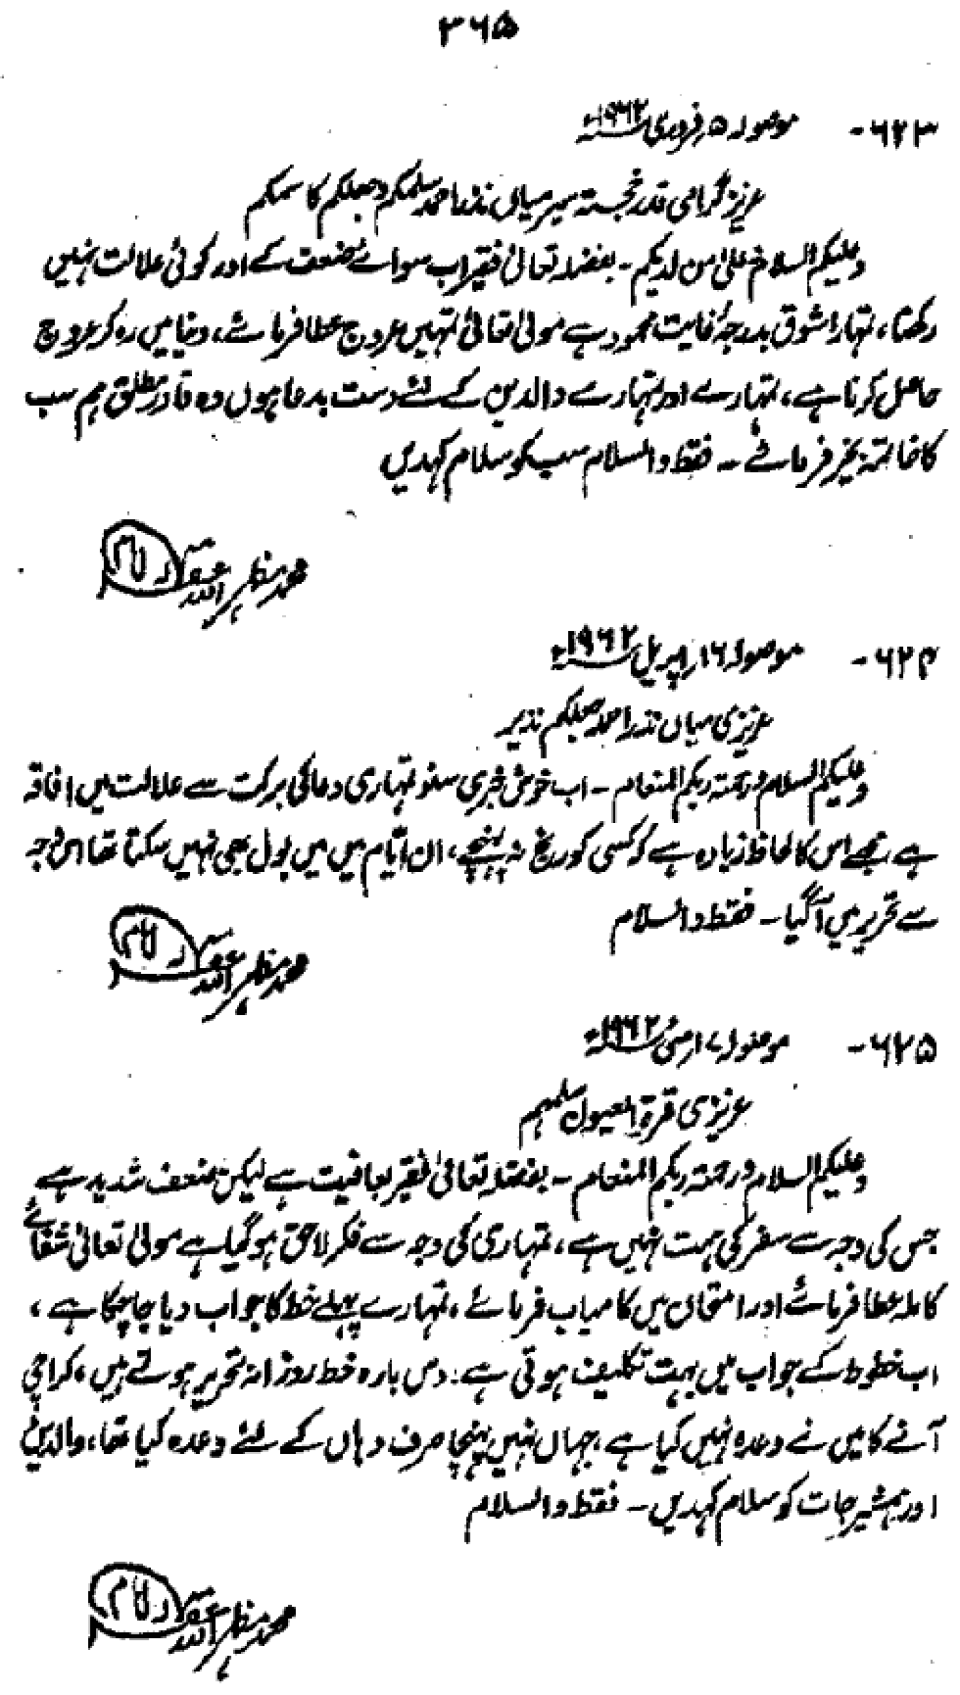 ۳۶۵
۶۲۳- موصولہ ۵ فروری ۱۹۶۲ء
عزیز گرامی قدر خجستہ سیر میاں نذر احمد سلمکم وجعلکم کا سمکم
وعلیکم السلام علیٰ من لدیکم - بفضلہ تعالیٰ فقیر اب سوائے ضعف کے اور کوئی علالت نہیں
رکھتا، تمہارا شوق بدرجۂ غایت محمود ہے مولیٰ تعالیٰ تمہیں عروج عطا فرمائے، دنیا میں رہ کر عروج
حاصل کرنا ہے، تمہارے اور تمہارے والدین کے لئے دست بدعا ہوں وہ قادر مطلق ہم سب
کا خاتمہ بخیر فرمائے - فقط والسلام سب کو سلام کہدیں
محمد مظہر اللہ غفرلہ
۶۲۴- موصولہ ۱۶ اپریل ۱۹۶۲ء
عزیزی میاں نذر احمد جعلکم نذیر
وعلیکم السلام ورحمتہ ربکم المنعام - اب خوش خبری سنو تمہاری دعا کی برکت سے علالت میں افاقہ
ہے، مجھے اس کا لحاظ زیادہ ہے کہ کسی کو رنج نہ پہنچے، ان ایام میں میں بول بھی نہیں سکتا تھا اس وجہ
سے تحریر میں آگیا - فقط والسلام
محمد مظہر اللہ غفرلہ
۶۲۵- موصولہ ۱۷ مئی ۱۹۶۲ء
عزیزی قرۃ العیون سلمہم
وعلیکم السلام ورحمتہ ربکم المنعام - بفضلہ تعالیٰ فقیر بعافیت ہے لیکن ضعف شدید ہے
جس کی وجہ سے سفر کی ہمت نہیں ہے، تمہاری کی وجہ سے فکر لاحق ہو گیا ہے مولیٰ تعالیٰ شفائے
کاملہ عطا فرمائے اور امتحان میں کامیاب فرمائے، تمہارے پہلے خط کا جواب دیا جا چکا ہے،
اب خطوط کے جواب میں بہت تکلیف ہوتی ہے، دس بارہ خط روزانہ تحریر ہوتے ہیں، کراچی
آنے کا میں نے وعدہ نہیں کیا ہے، جہاں نہیں پہنچا صرف وہاں کے لئے وعدہ کیا تھا، والدین
اور ہمشیر جات کو سلام کہدیں - فقط والسلام
محمد مظہر اللہ غفرلہ